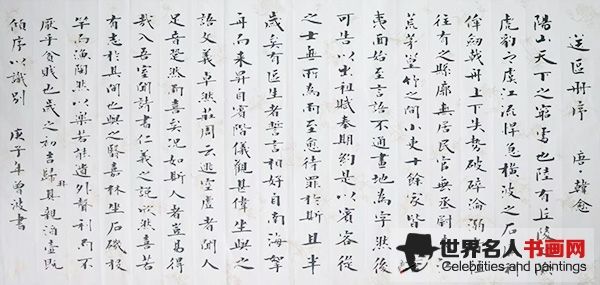 送區册序 唐·韓愈
陽山天下之窮處也陸有丘陵之
虎豹之虞江流悍急橫波之石
侔劍戟舟上下失勢破碎淪溺
往有之縣廓無居民官無丞尉
荒茅篁竹之間小吏十餘家皆
夷面始至言語不通畫地為字然後
可告以出租賦奉期約是以賓客從
之士無所為而至愈待罪於斯且半
歲矣有區生者誓言相好自南海挐
舟而來昇自賓階儀觀甚偉坐與之
語文義卓然莊周云逃空虛者聞人
足音跫然而喜矣況如斯人者豈易得
哉入吾室聞詩書仁義之說欣然喜若
有志於其間也與之翳嘉林坐石磯投
竿而漁陶然以樂若能遺外聲利而不
厭乎貧賤也歲之初吉歸拜其親酒壺既
傾序以識別 庚子年曾波書
世界名人书画网
Celebrities and paintings